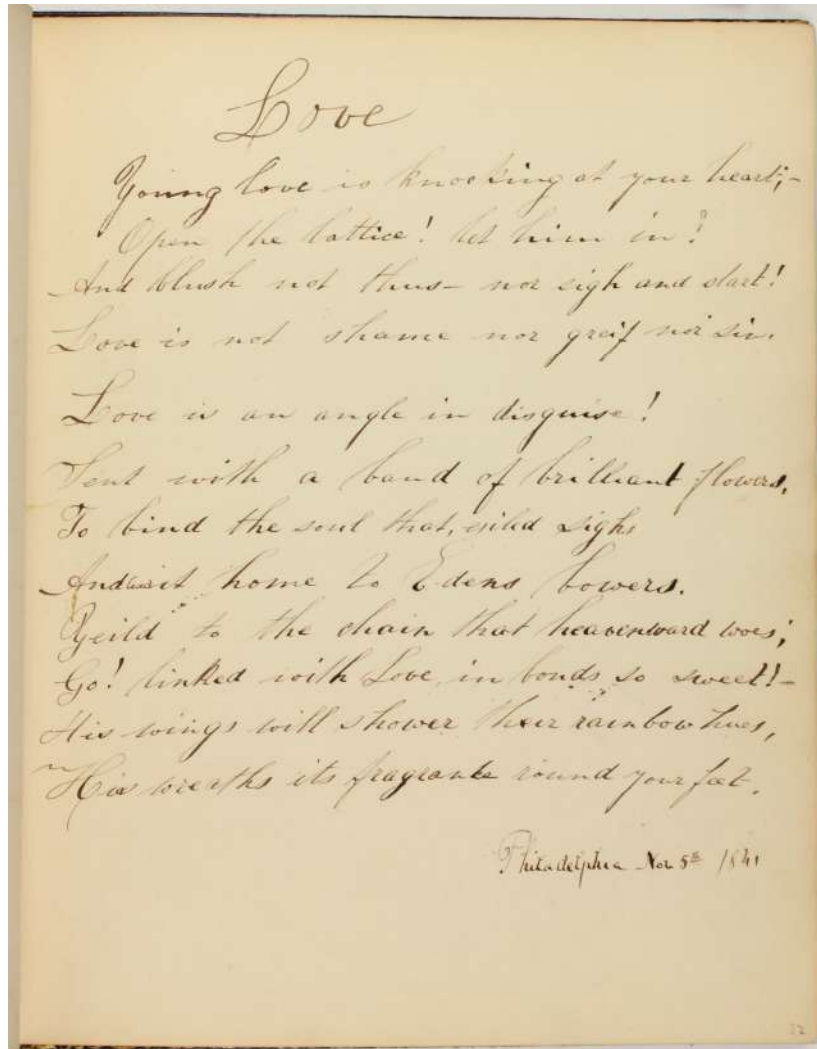 Love
Young love is knocking at your heart;-
Open the lattice! let him in!
And blush not thus- nor sigh and start!
Love is not shame nor greif nor sin.
Love is an angle in disguise!
Sent with a band of brilliant flowers,
To bind the soul that, exiled sighs
And it home to Edens bowers.
Yeild to the chain that heavenward woos;
Go! linked with Love, in bonds so sweet!-
His wings will shower their rainbow hues,
His wreaths its fragrance round your feet.
Philadelphia Nov 5th 1841
32